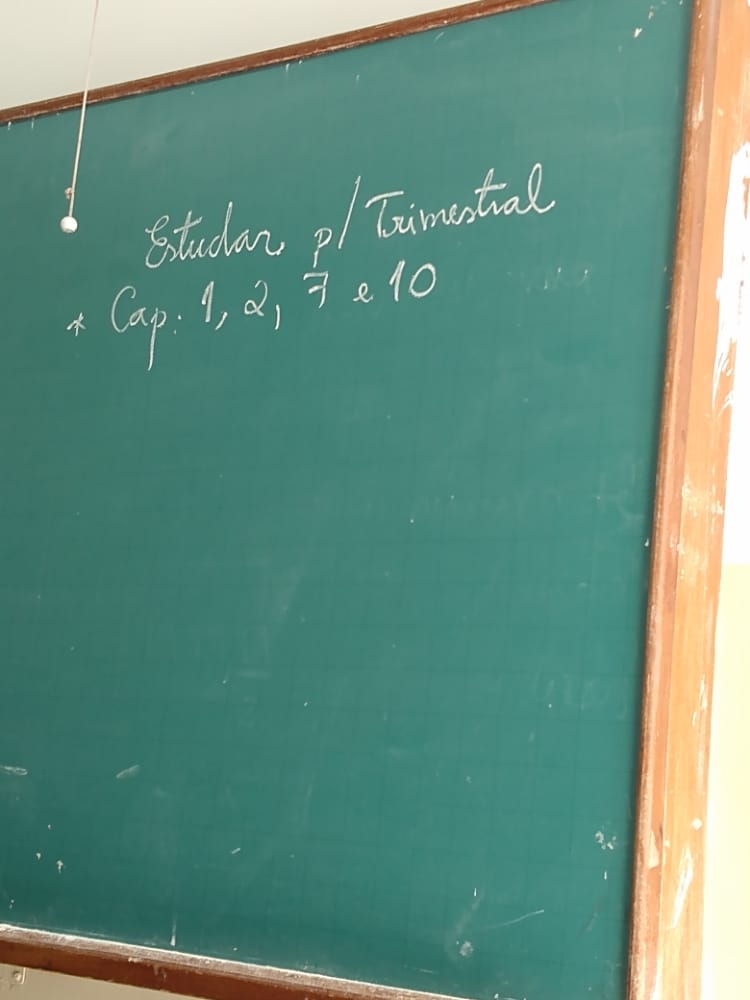 Estudar p/ Trimestral
* Cap: 1, 2, 7 e 10